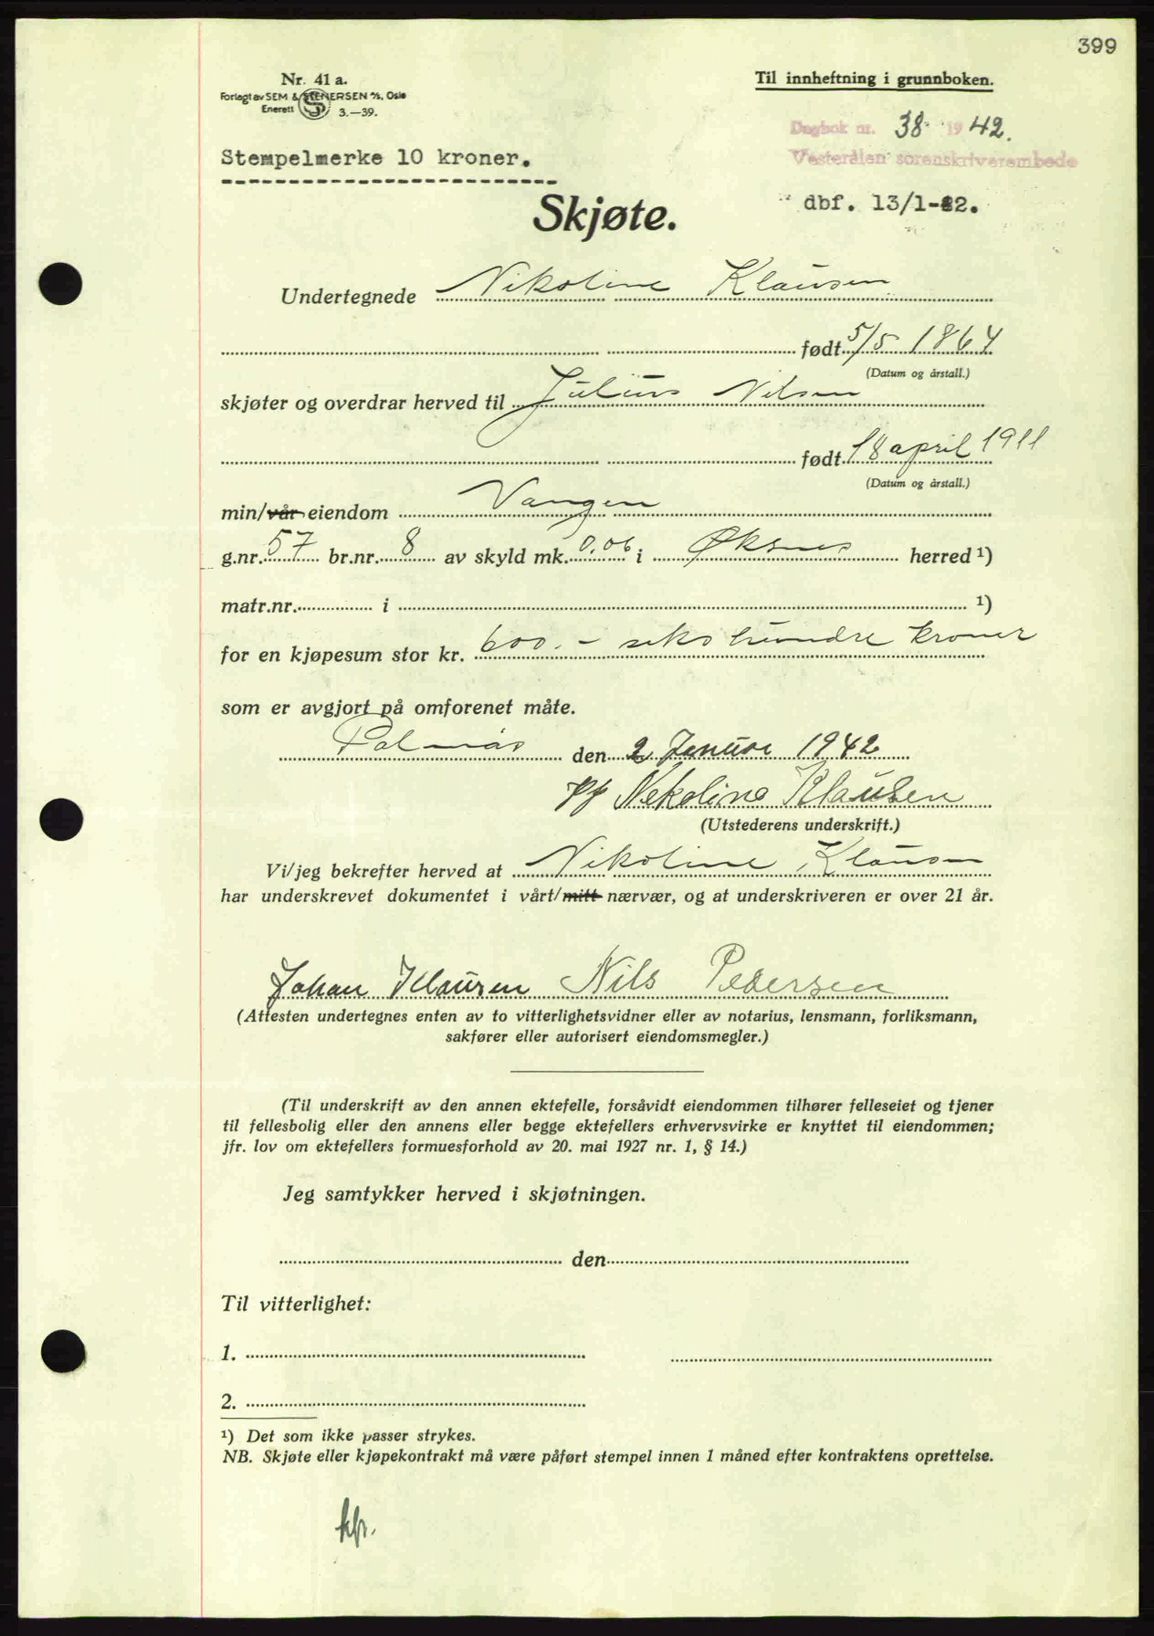 399
Nr. 41 a.
Forlagt av SEM & STENERSEN A/S, Oslo
Enerett 3.—39.
Til innheftning i grunnboken.
Dagbok nr. 38 1942.
Vesterålen sorenskriverembede
Stempelmerke 10 kroner.
dbf. 13/1-42.
Skjøte.
Undertegnede Nikoline Klausen
født 5/5 1864
(Datum og årstall.)
skjøter og overdrar herved til Julius Nilsen
født 18 april 1911
(Datum og årstall.)
min/vår eiendom Vangen
g.nr. 57 br.nr. 8 av skyld mk. 0.06 i Øksnes herred ¹)
matr.nr. i ¹)
for en kjøpesum stor kr. 600.- seks hundre kroner
som er avgjort på omforenet måte.
den 2 Januar 1942
Nekoline Klausen
(Utstederens underskrift.)
Vi/jeg bekrefter herved at Nikoline Klausen
har underskrevet dokumentet i vårt/mitt nærvær, og at underskriveren er over 21 år.
Johan Klausen Nils Pedersen
(Attesten undertegnes enten av to vitterlighetsvidner eller av notarius, lensmann, forliksmann,
sakfører eller autorisert eiendomsmegler.)
(Til underskrift av den annen ektefelle, forsåvidt eiendommen tilhører felleseiet og tjener
til fellesbolig eller den annens eller begge ektefellers erhvervsvirke er knyttet til eiendommen;
jfr. lov om ektefellers formuesforhold av 20. mai 1927 nr. 1, § 14.)
Jeg samtykker herved i skjøtningen.
den
Til vitterlighet:
1.
2.
¹) Det som ikke passer strykes.
NB. Skjøte eller kjøpekontrakt må være påført stempel innen 1 måned efter kontraktens oprettelse.